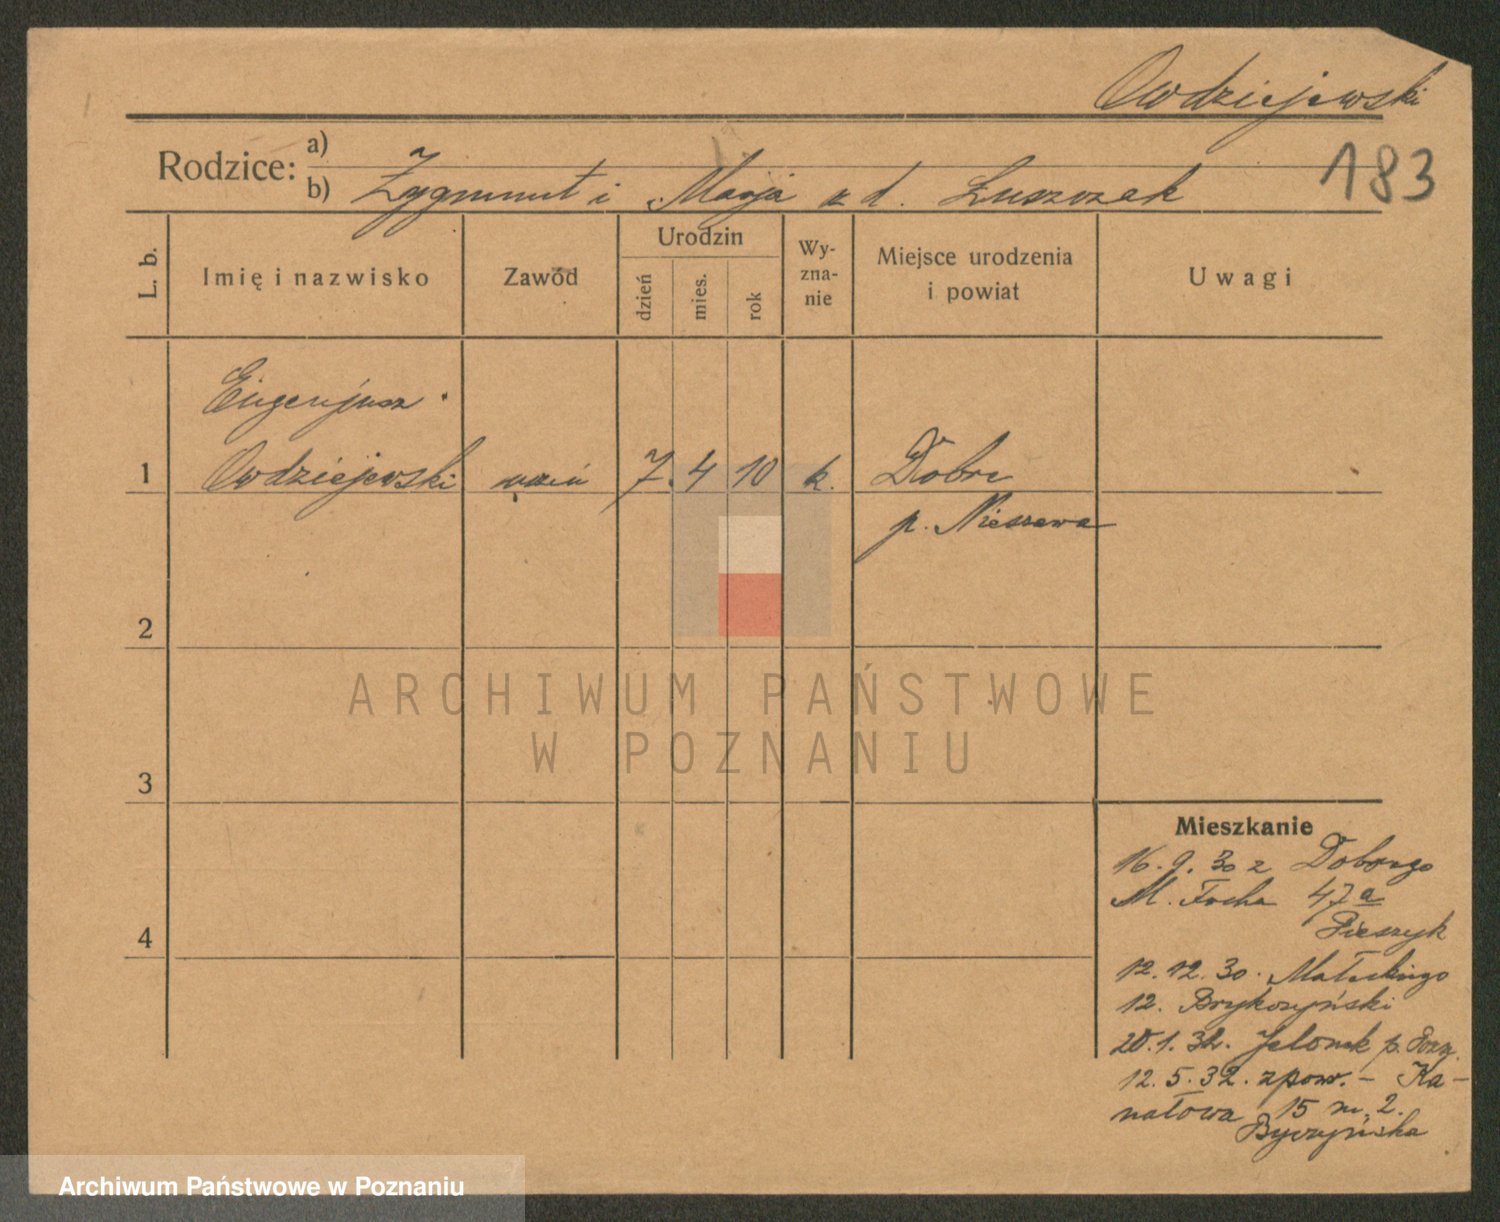 Owdziejewski
Rodzice: a)
b) Zygmunt i Marja z d. Łuszczak
183
L. b.
Imię i nazwisko
Zawód
Urodzin
dzień
mies.
rok
Wy-
zna-
nie
Miejsce urodzenia
i powiat
Uwagi
Eugenjusz
1 Owdziejewski uczeń 7. 4 10 k. Dobre
p. Nieszawa
2
3
4
ARCHIWUM PAŃSTWOWE
W POZNANIU
Mieszkanie
16. 9. 30 z Dobrego
M. Focha 47a
Pieszyk
12. 12. 30. Małeckiego
12. Brykczyński
20. 1. 32. Jelonek p. Pozn.
12. 5. 32. zpow. - Ka-
nałowa 15 m. 2.
Byczyńska
Archiwum Państwowe w Poznaniu